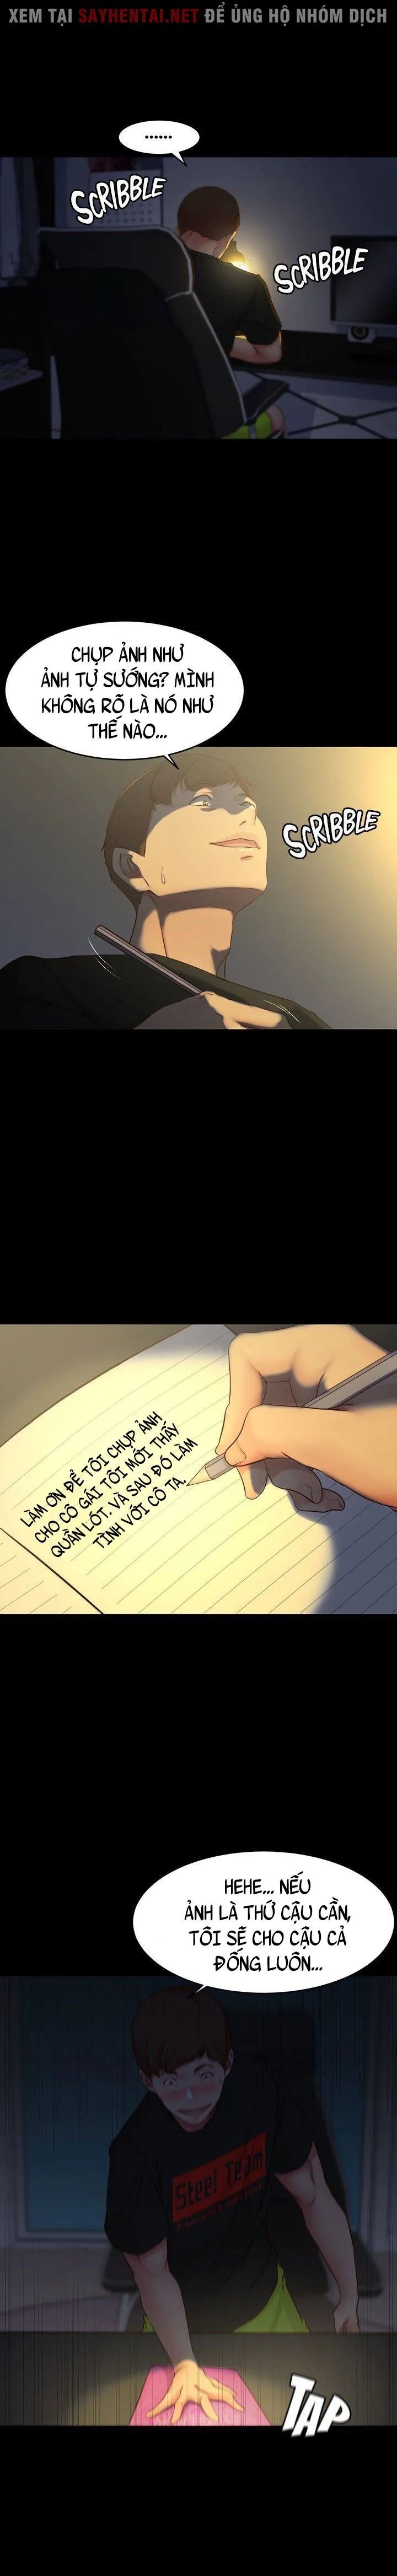 XEM TẠI SAYHENTAI.NET ĐỂ ỦNG HỘ NHÓM DỊCH
......
SCRIBBLE
SCRIBBLE
CHỤP ẢNH NHƯ
ẢNH TỰ SƯỚNG? MÌNH
KHÔNG RÕ LÀ NÓ NHƯ
THẾ NÀO...
SCRIBBLE
LÀM ƠN ĐỂ TÔI CHỤP ẢNH
CHO CÔ GÁI TÔI MỚI THẤY
QUẦN LÓT. VÀ SAU ĐÓ LÀM
TÌNH VỚI CÔ TA.
HEHE... NẾU
ẢNH LÀ THỨ CẬU CẦN,
TÔI SẼ CHO CẬU CẢ
ĐỐNG LUÔN...
Steel Team
TAP